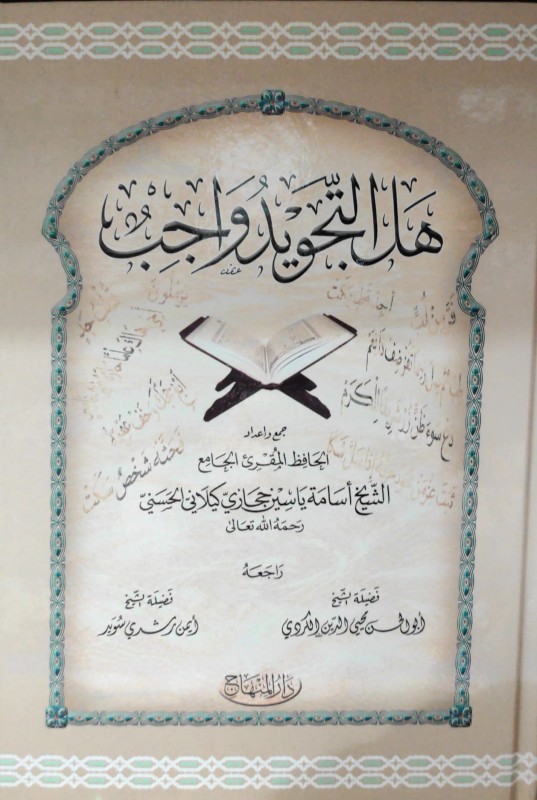 هَل التَّجْوِيدُ وَاجِبٌ
جمع وإعداد
الحافظ المقرئ الجامع
الشيخ أسامة ياسين حجازي كيلاني الحسني
رحمه الله تعالى
راجعه
فضيلة الشيخ
أبو الحسن محيي الدين الكردي
فضيلة الشيخ
أيمن رشدي سويد
دار المنهاج